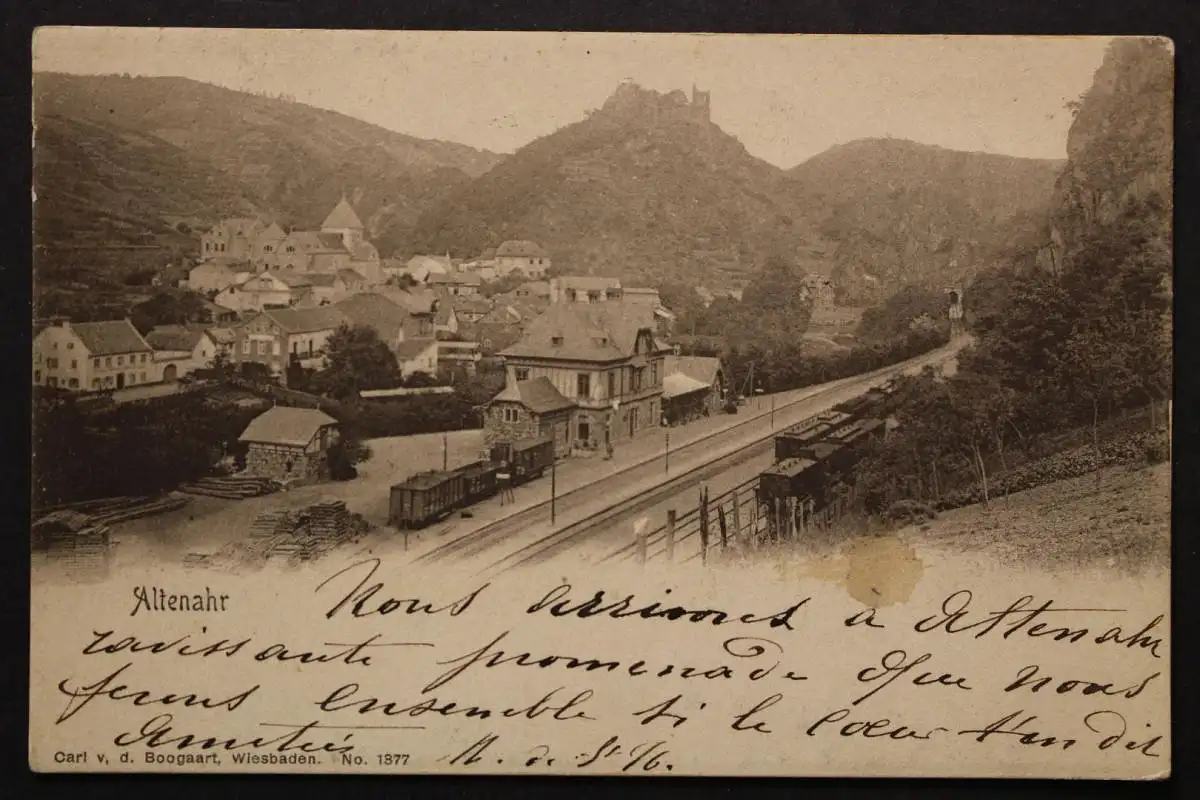 Altenahr
Nous arrivons à Altenahr
ravissante promenade que nous
ferons ensemble si le cœur t'en dit
Amitiés
Carl v. d. Boogaart, Wiesbaden. No. 1877